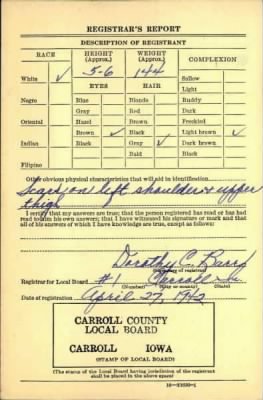 REGISTRAR'S REPORT
DESCRIPTION OF REGISTRANT
RACE HEIGHT (Approx.) WEIGHT (Approx.) COMPLEXION
White ✓ 5-6 144 Sallow
EYES HAIR Light
Negro Blue Blonde Ruddy
Gray Red Dark
Oriental Hazel Brown Freckled
Brown ✓ Black Light brown ✓
Indian Black Gray ✓ Dark brown
Bald Black
Filipino
Other obvious physical characteristics that will aid in identification
Scars on left shoulder & upper
thigh
I certify that my answers are true; that the person registered has read or has had
read to him his own answers; that I have witnessed his signature or mark and that
all of his answers of which I have knowledge are true, except as follows:
Dorothy C.
(Signature of registrar)
Registrar for Local Board #1 Carroll Ia.
(Number) (City or county) (State)
Date of registration April 27, 1942
CARROLL COUNTY
LOCAL BOARD
CARROLL IOWA
(STAMP OF LOCAL BOARD)
(The stamp of the Local Board having jurisdiction of the registrant
shall be placed in the above space)